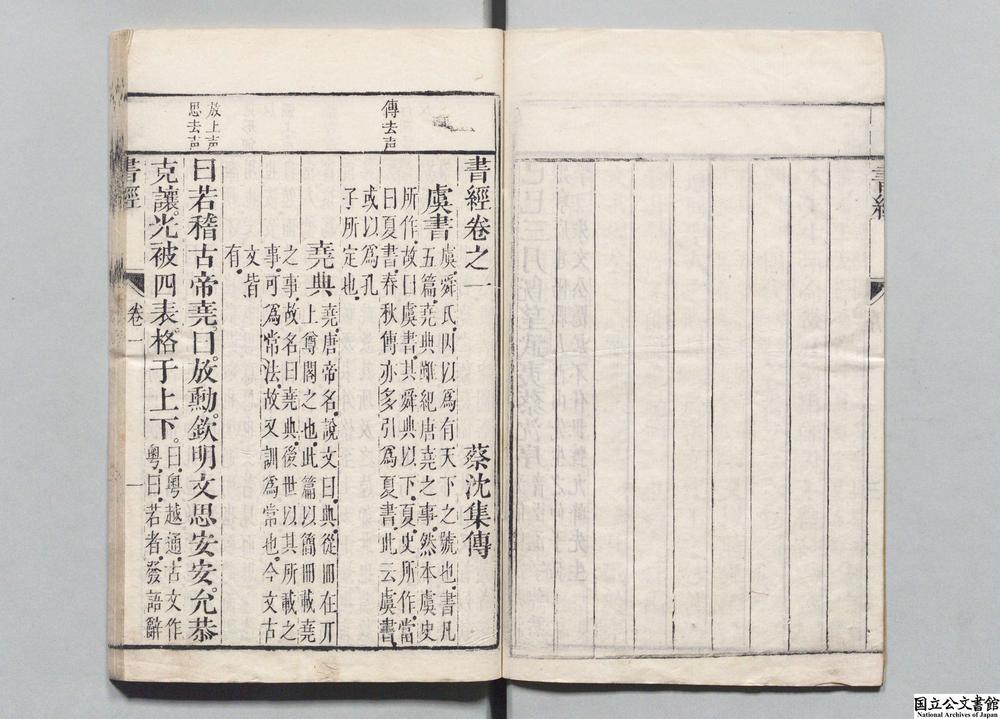 書經
書經卷之一　蔡沈集傳
傳去声
虞書
虞舜氏因以爲有天下之號也書凡
五篇堯典雖紀唐堯之事然本虞史
所作故曰虞書其舜典以下夏史所作當
曰夏書春秋傳亦多引爲夏書此云虞書
或以爲孔
子所定也
堯典
堯唐帝名說文曰典從冊在丌
上尊閣之也此篇以簡冊載堯
之事故名曰堯典後世以其所載之
事可爲常法故又訓爲常也今文古
文皆
有
放上声
思去声
曰若稽古帝堯曰放勳欽明文思安安允恭
克讓光被四表格于上下
曰粵越通古文作
粵曰若者發語辭
書經　卷一　一
国立公文書館
National Archives of Japan